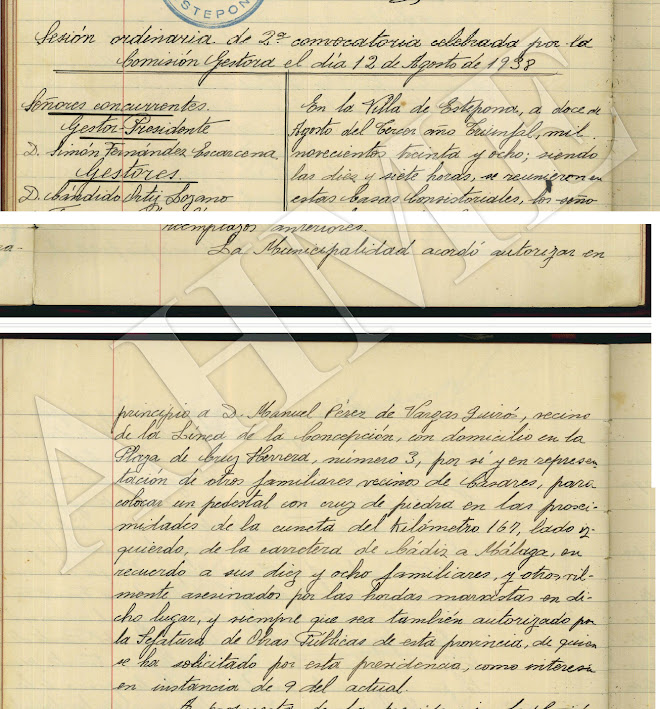 ESTEPONA
Sesión ordinaria de 2ª convocatoria celebrada por la
Comisión Gestora el día 12 de Agosto de 1938
Señores concurrentes.
Gestor-Presidente
D. Simón Fernández Escarcena
Gestores.
D. Cándido Ortiz Lozano
En la Villa de Estepona, a doce de
Agosto del Tercer año Triunfal, mil
novecientos treinta y ocho; siendo
las diez y siete horas, se reunieron en
estas Casas Consistoriales, los seño
reemplazos anteriores.
La Municipalidad acordó autorizar en
principio a D. Manuel Pérez de Vargas Quirós, vecino
de la Línea de la Concepción, con domicilio en la
Plaza de Cruz Herrera, número 3, por sí y en represen
tación de otros familiares vecinos de Casares, para
colocar un pedestal con cruz de piedra en las proxi-
midades de la cuneta del Kilómetro 167, lado iz-
quierdo, de la carretera de Cádiz a Málaga, en
recuerdo a sus diez y ocho familiares, y otros vil-
mente asesinados por las hordas marxistas en di-
cho lugar, y siempre que sea también autorizado por
la Jefatura de Obras Públicas de esta provincia, de quien
se ha solicitado por esta presidencia, como interesa
en instancia de 9 del actual.
AHME